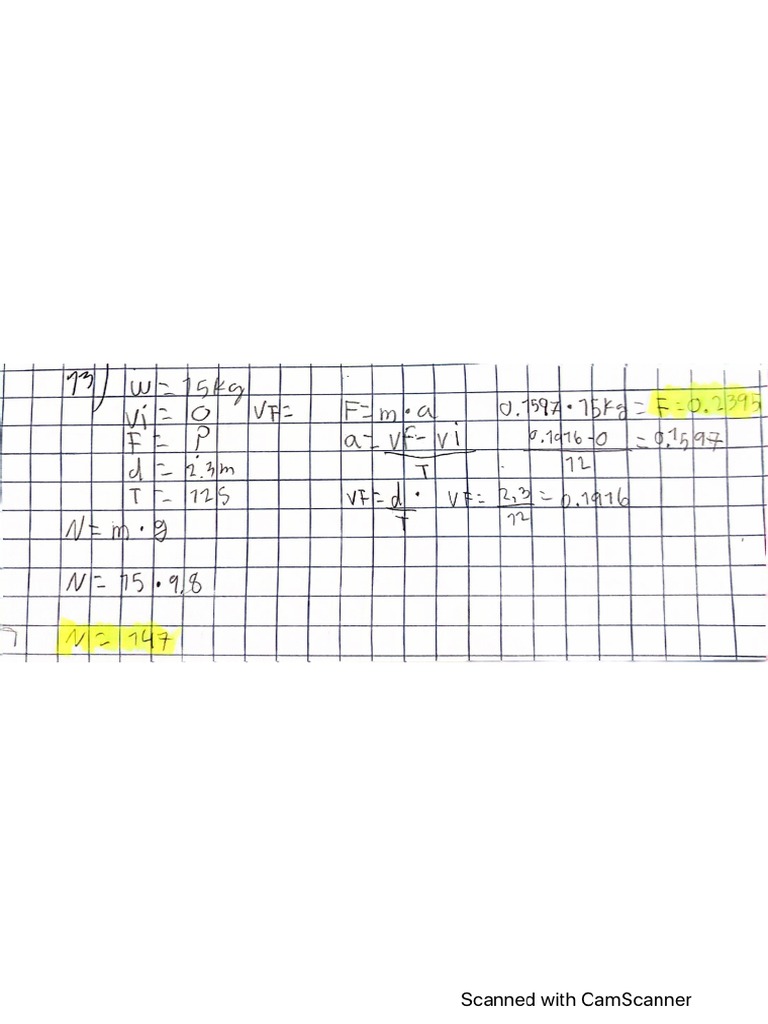 13) w = 15kg
Vi = 0 VF=
F = ?
d = 2.3m
T = 12s
N = m · g
N = 15 · 9,8
N = 147
F = m · a
a = VF - Vi
T
VF = d ·
T
VF = 2,3 = 0.1916
12
0.1597 · 15kg = F = 0.2395
0.1916-0 = 0.1597
12
Scanned with CamScanner